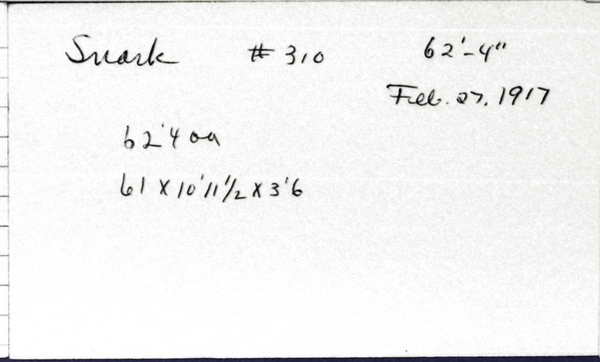 Snark # 310 62'-4"
Feb. 27, 1917
62'4 oa
61 X 10'11 1/2 X 3'6